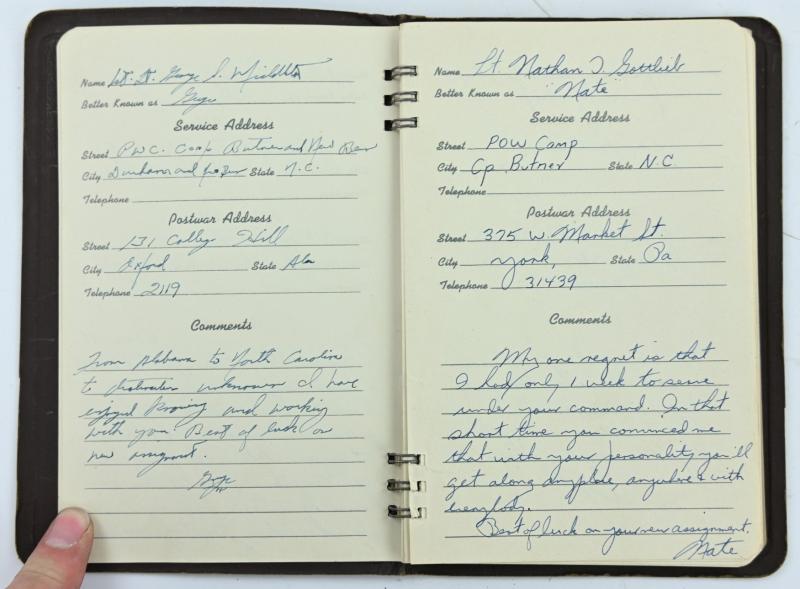 Name Lt. George S. Middleton
Better Known as
Service Address
Street P.W.C. Camp Butner and New Bern
City Durham and State N.C.
Telephone
Postwar Address
Street 131 College Hill
City Oxford State Ala
Telephone 2119
Comments
From Alabama to North Carolina
to destination unknown I have
enjoyed knowing and working
with you. Best of luck on
new assignment.
Name Lt. Nathan I. Gottlieb
Better Known as "Nate"
Service Address
Street POW Camp
City Cp. Butner State N.C.
Telephone
Postwar Address
Street 375 W. Market St.
City York, State Pa
Telephone 31439
Comments
My one regret is that
I had only 1 week to serve
under your command. In that
short time you convinced me
that with your personality you'll
get along anyplace, anywhere & with
everybody.
Best of luck on your new assignment.
Nate